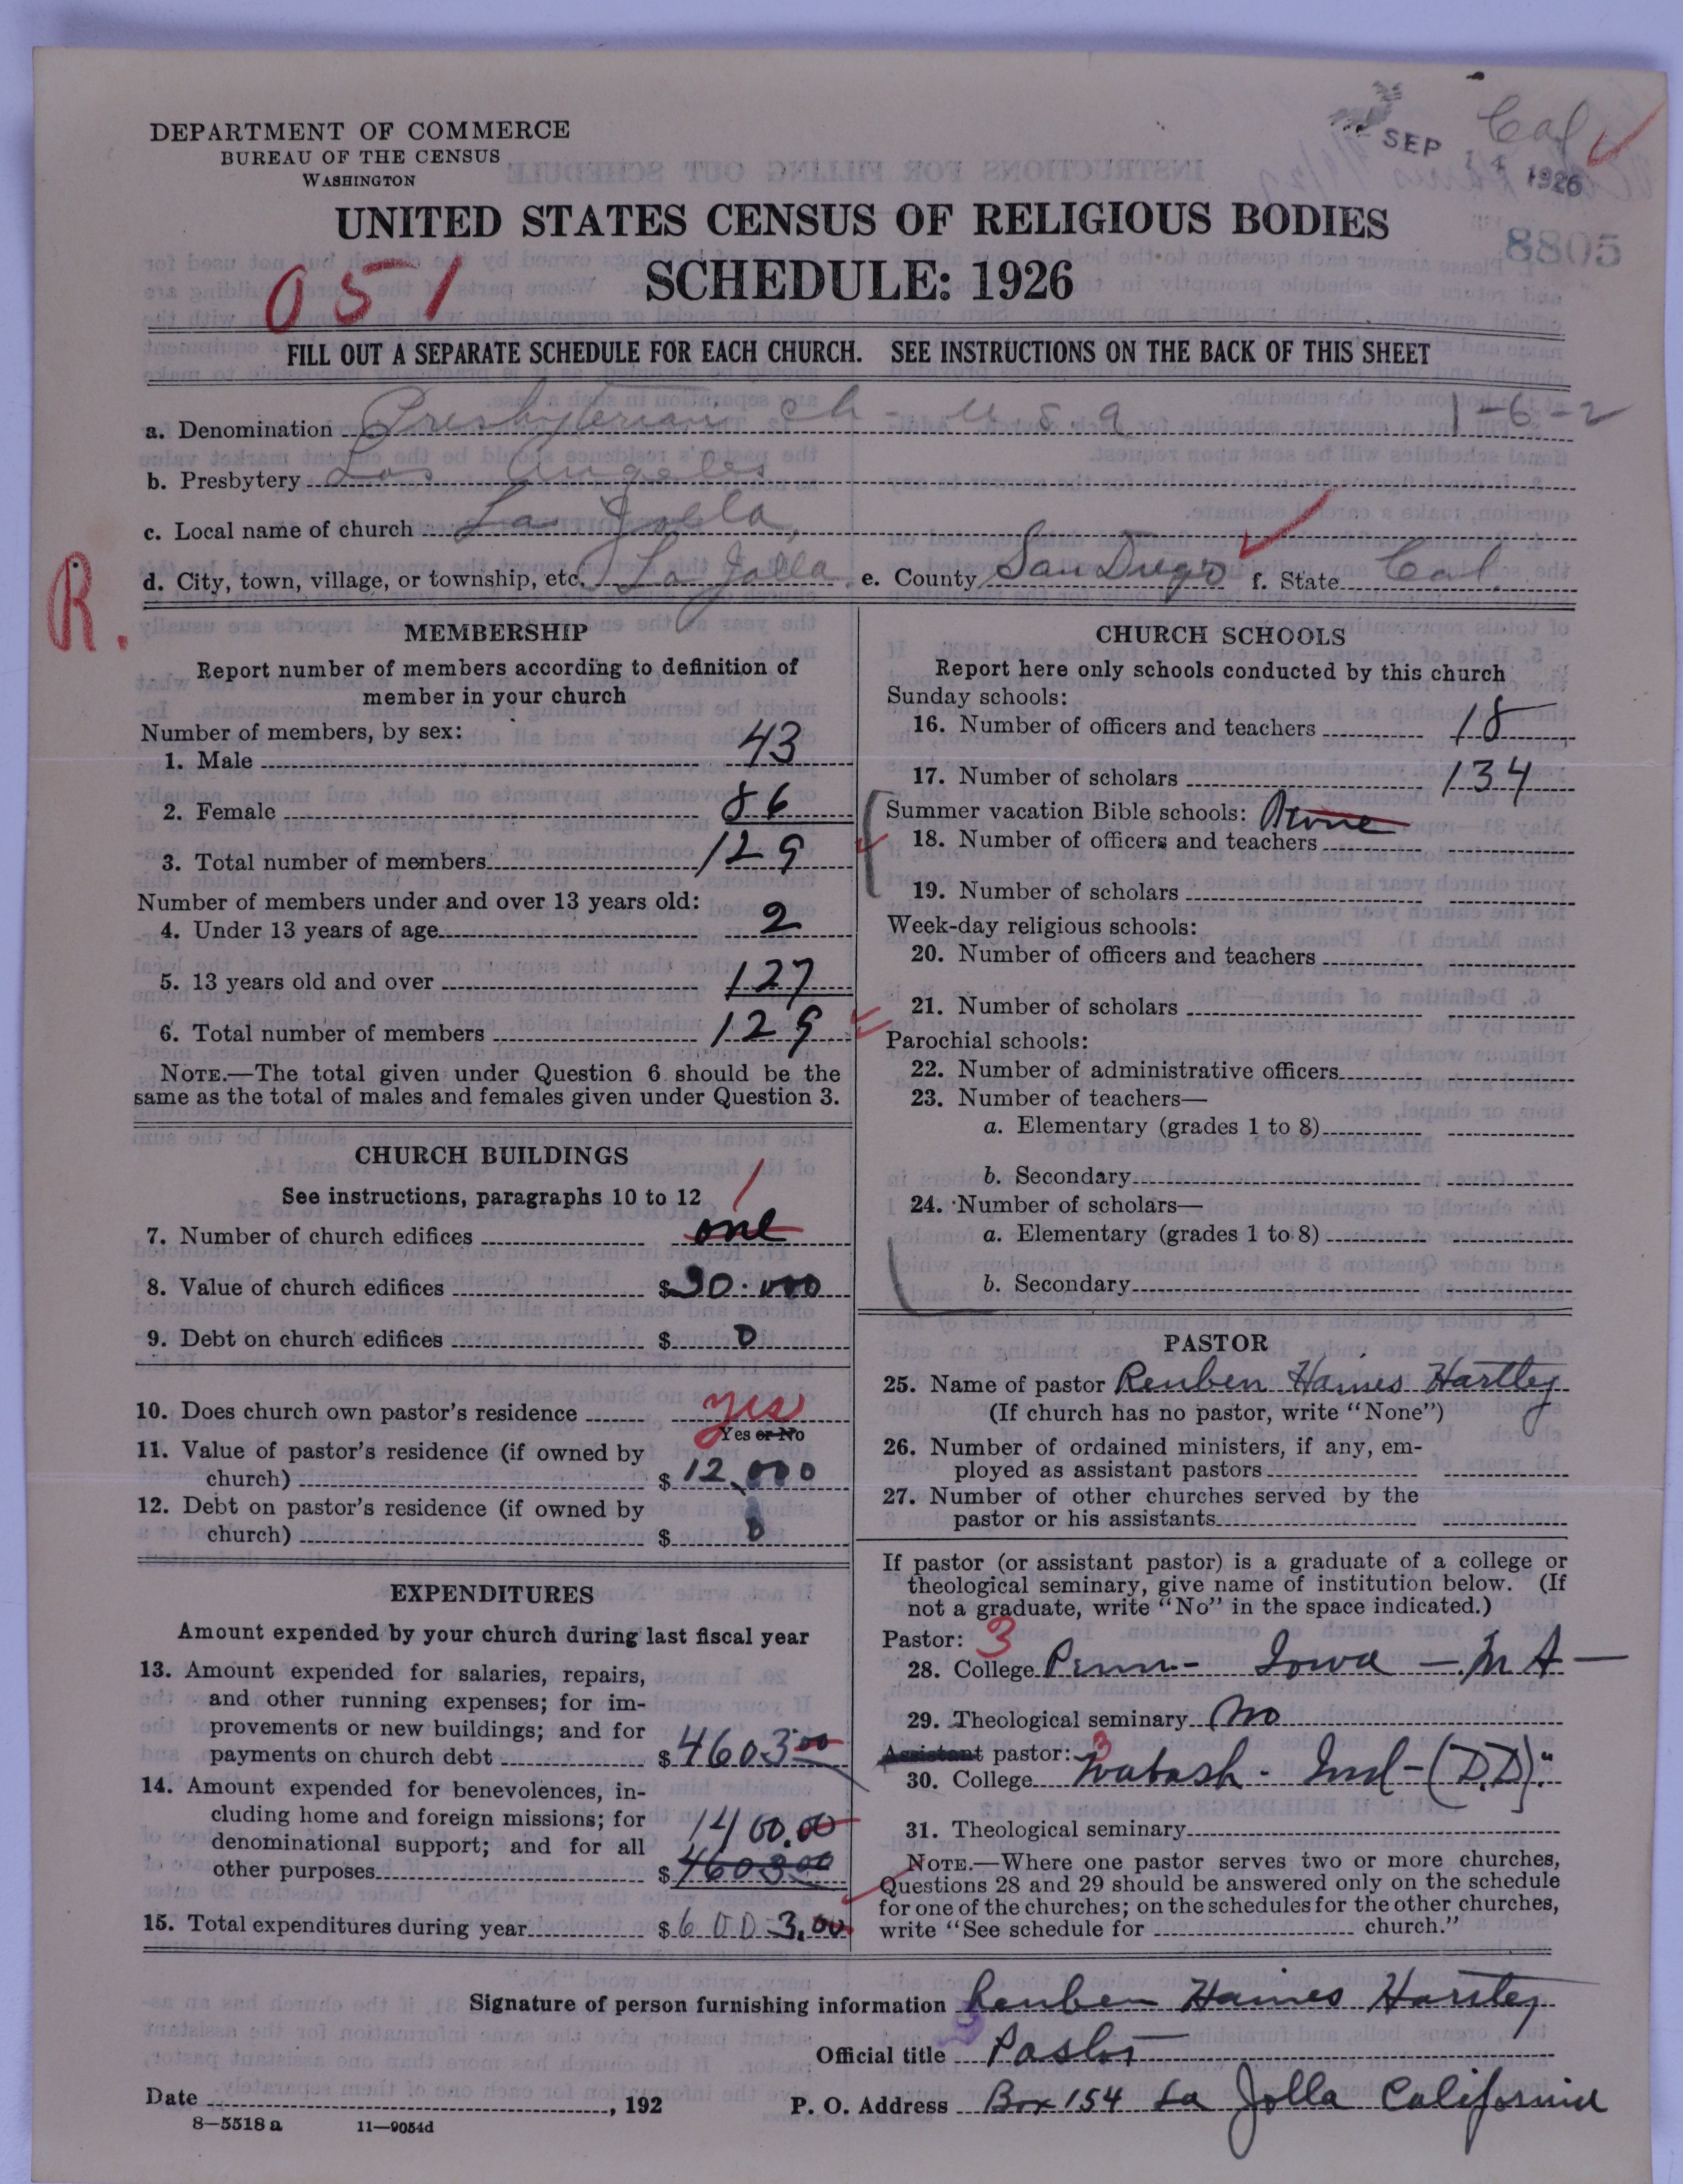 DEPARTMENT OF COMMERCE
BUREAU OF THE CENSUS
WASHINGTON
SEP 14 1926
Cal
8805
UNITED STATES CENSUS OF RELIGIOUS BODIES
SCHEDULE: 1926
051
FILL OUT A SEPARATE SCHEDULE FOR EACH CHURCH. SEE INSTRUCTIONS ON THE BACK OF THIS SHEET
a. Denomination Presbyterian Ch - U S A 1-6-2
b. Presbytery Los Angeles
c. Local name of church La Jolla
d. City, town, village, or township, etc. La Jolla e. County San Diego f. State Cal
R.
MEMBERSHIP
Report number of members according to definition of
member in your church
Number of members, by sex:
1. Male 43
2. Female 86
3. Total number of members 129
Number of members under and over 13 years old:
4. Under 13 years of age 2
5. 13 years old and over 127
6. Total number of members 129
NOTE.—The total given under Question 6 should be the
same as the total of males and females given under Question 3.
CHURCH BUILDINGS
See instructions, paragraphs 10 to 12
1
7. Number of church edifices one
8. Value of church edifices $
9. Debt on church edifices $ 0
10. Does church own pastor's residence yes
Yes or No
11. Value of pastor's residence (if owned by
church) $ 12,000
12. Debt on pastor's residence (if owned by
church) $ 0
EXPENDITURES
Amount expended by your church during last fiscal year
13. Amount expended for salaries, repairs,
and other running expenses; for im-
provements or new buildings; and for
payments on church debt $ 4603.00
14. Amount expended for benevolences, in-
cluding home and foreign missions; for
denominational support; and for all 1400.00
other purposes $ 4603.00
15. Total expenditures during year $ 6003.00
CHURCH SCHOOLS
Report here only schools conducted by this church
Sunday schools:
16. Number of officers and teachers 18
17. Number of scholars 134
Summer vacation Bible schools: None
18. Number of officers and teachers
19. Number of scholars
Week-day religious schools:
20. Number of officers and teachers
21. Number of scholars
Parochial schools:
22. Number of administrative officers
23. Number of teachers—
a. Elementary (grades 1 to 8)
b. Secondary
24. Number of scholars—
a. Elementary (grades 1 to 8)
b. Secondary
PASTOR
25. Name of pastor Reuben Haines Hartley
(If church has no pastor, write "None")
26. Number of ordained ministers, if any, em-
ployed as assistant pastors
27. Number of other churches served by the
pastor or his assistants
If pastor (or assistant pastor) is a graduate of a college or
theological seminary, give name of institution below. (If
not a graduate, write "No" in the space indicated.)
Pastor: 3
28. College Penn - Iowa - M A -
29. Theological seminary No
Assistant pastor: 3
30. College Wabash - Ind - (D.D).
31. Theological seminary
NOTE.—Where one pastor serves two or more churches,
Questions 28 and 29 should be answered only on the schedule
for one of the churches; on the schedules for the other churches,
write "See schedule for church."
Signature of person furnishing information Reuben Haines Hartley
Official title Pastor
Date , 192 P. O. Address Box 154 La Jolla California
8—5518a 11—9054d